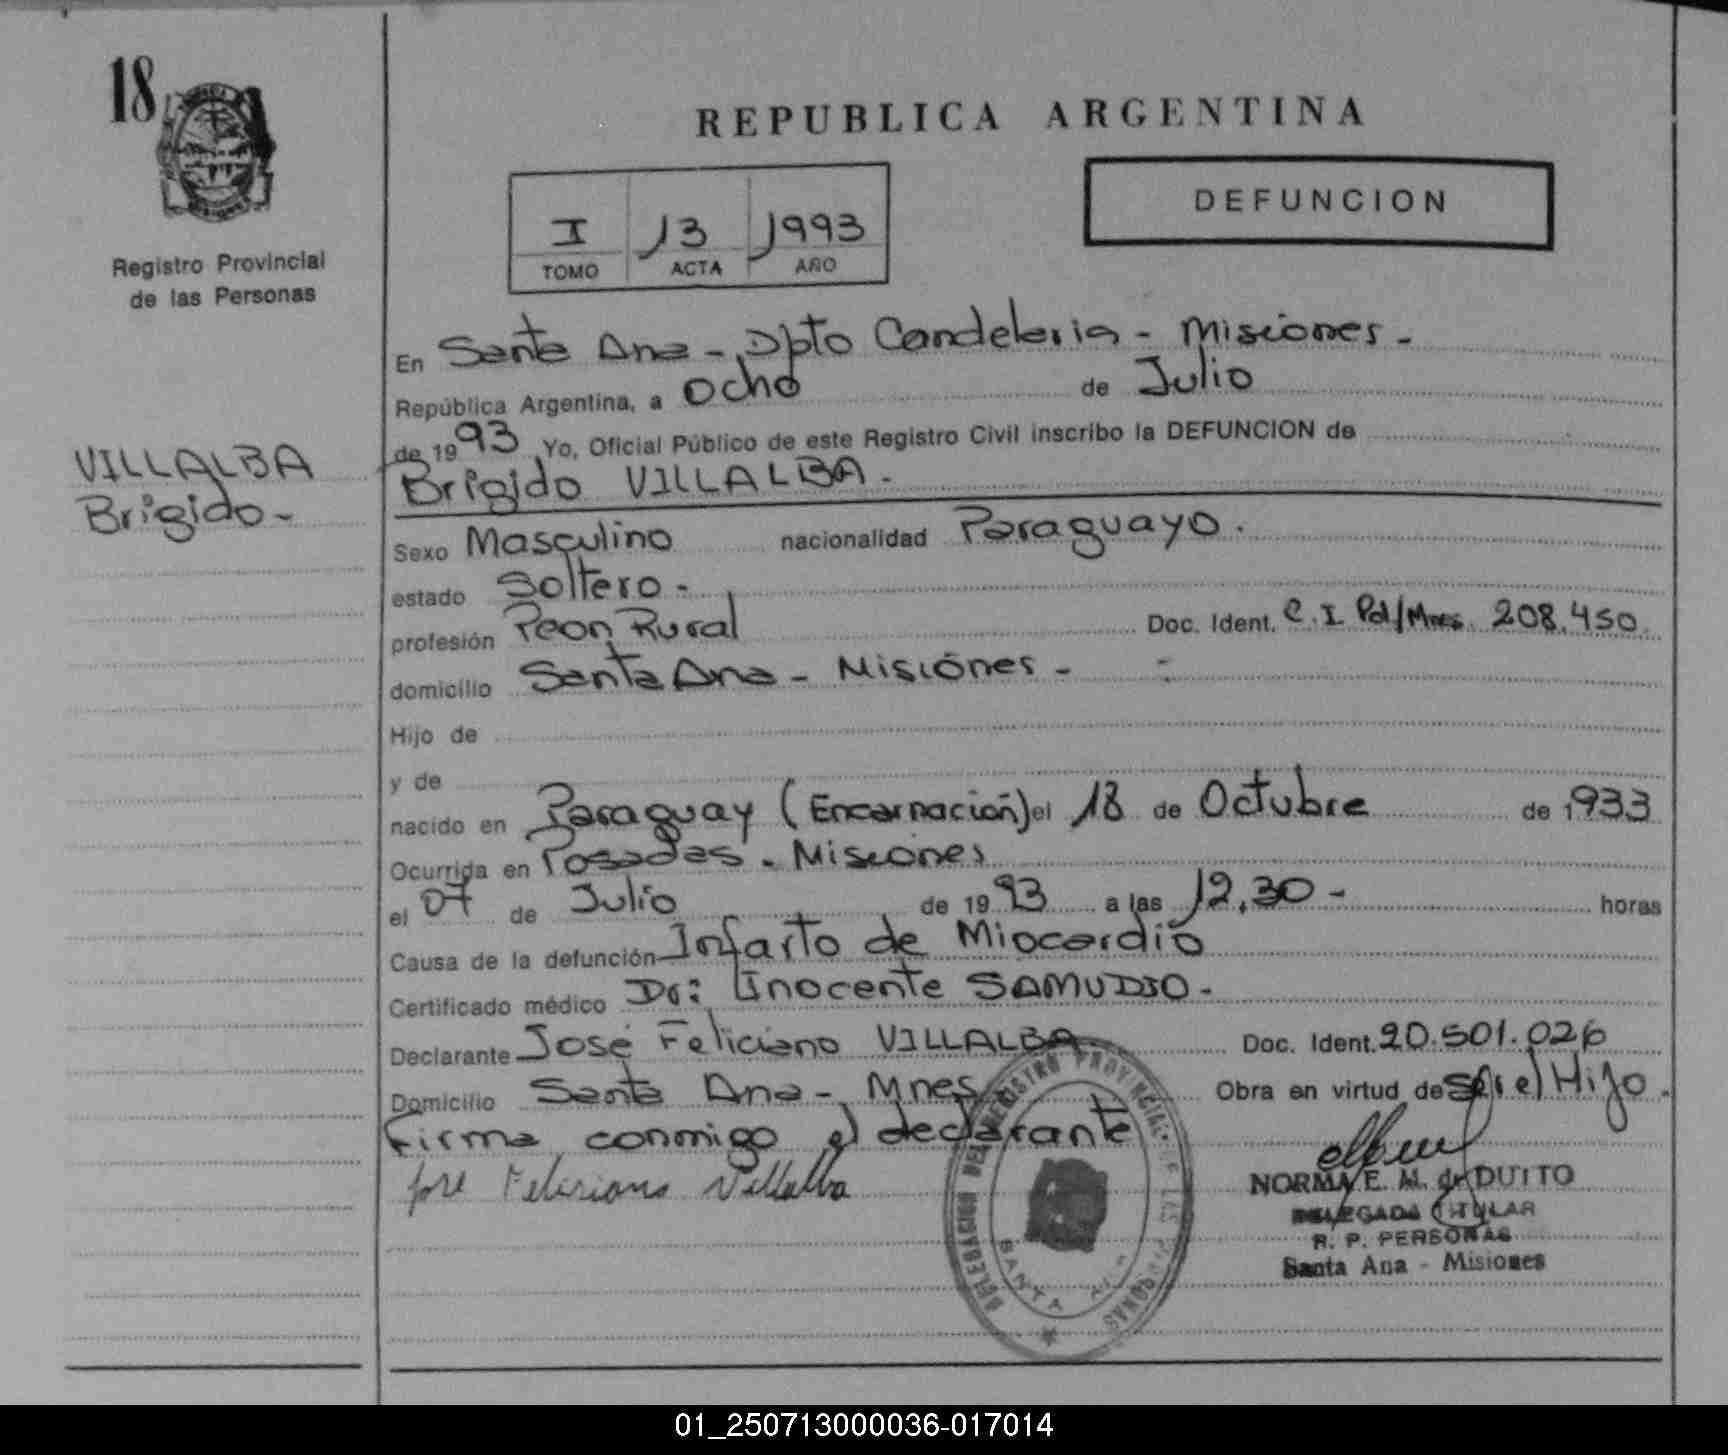 18
Registro Provincial
de las Personas
VILLALBA
Brigido-
REPUBLICA ARGENTINA
I 13 1993
TOMO ACTA AÑO
DEFUNCION
En Santa Ana - Dpto Candelaria - Misiones -
República Argentina, a Ocho de Julio
de 1993 Yo, Oficial Público de este Registro Civil inscribo la DEFUNCION de
Brigido VILLALBA.
Sexo Masculino nacionalidad Paraguayo.
estado Soltero -
profesión Peon Rural Doc. Ident. C. I. Pol/Mnes. 208.450
domicilio Santa Ana - Misiónes -
Hijo de
y de
nacido en Paraguay (Encarnación) el 18 de Octubre de 1933
Ocurrida en Posadas - Misiones
el 07 de Julio de 1993 a las 12,30 - horas
Causa de la defunción Infarto de Miocardio
Certificado médico Dr: Inocente SAMUDIO -
Declarante José Feliciano VILLALBA Doc. Ident. 20.501.026
Domicilio Santa Ana - Mnes Obra en virtud de ser el Hijo.
Firma conmigo el declarante
José Feliciano Villalba
DELEGACION DEL REGISTRO PROVINCIAL DE LAS PERSONAS
SANTA ANA
NORMA E. M. de DUTTO
DELEGADA TITULAR
R. P. PERSONAS
Santa Ana - Misiones
01_250713000036-017014